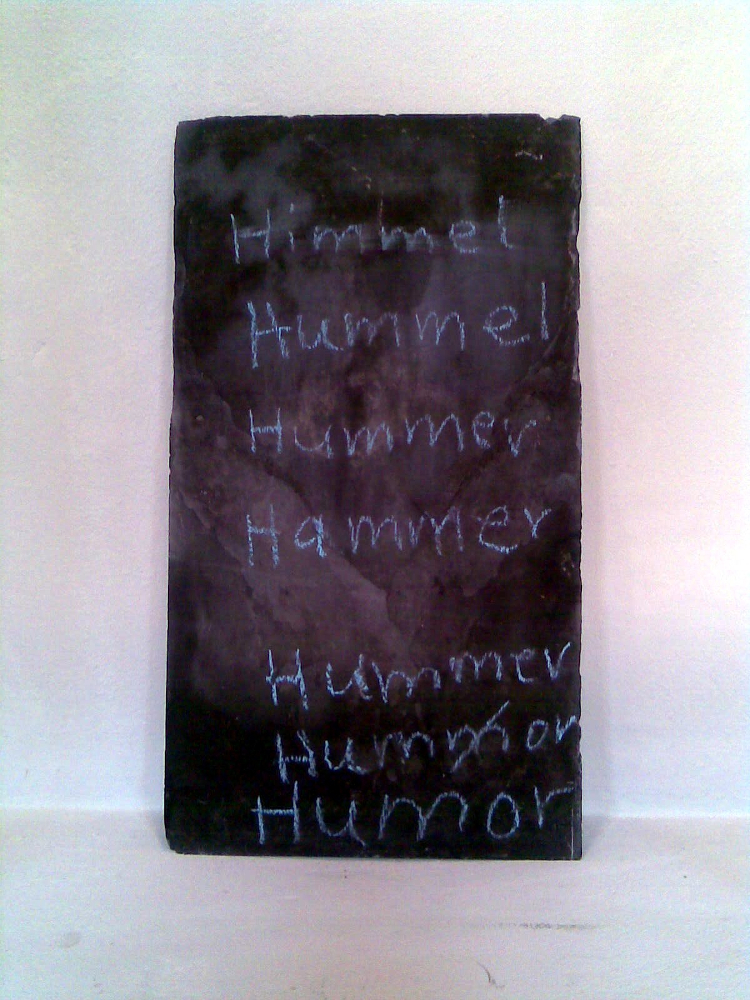 Himmel
Hummel
Hummer
Hammer
Hummer
Humor